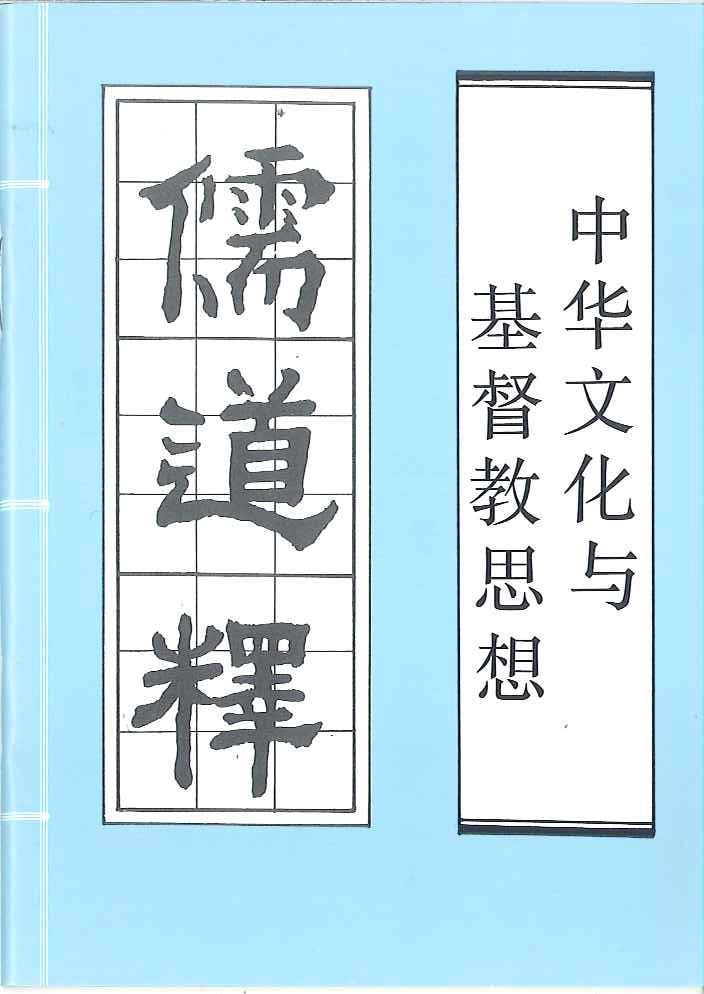 中华文化与
基督教思想
儒道釋